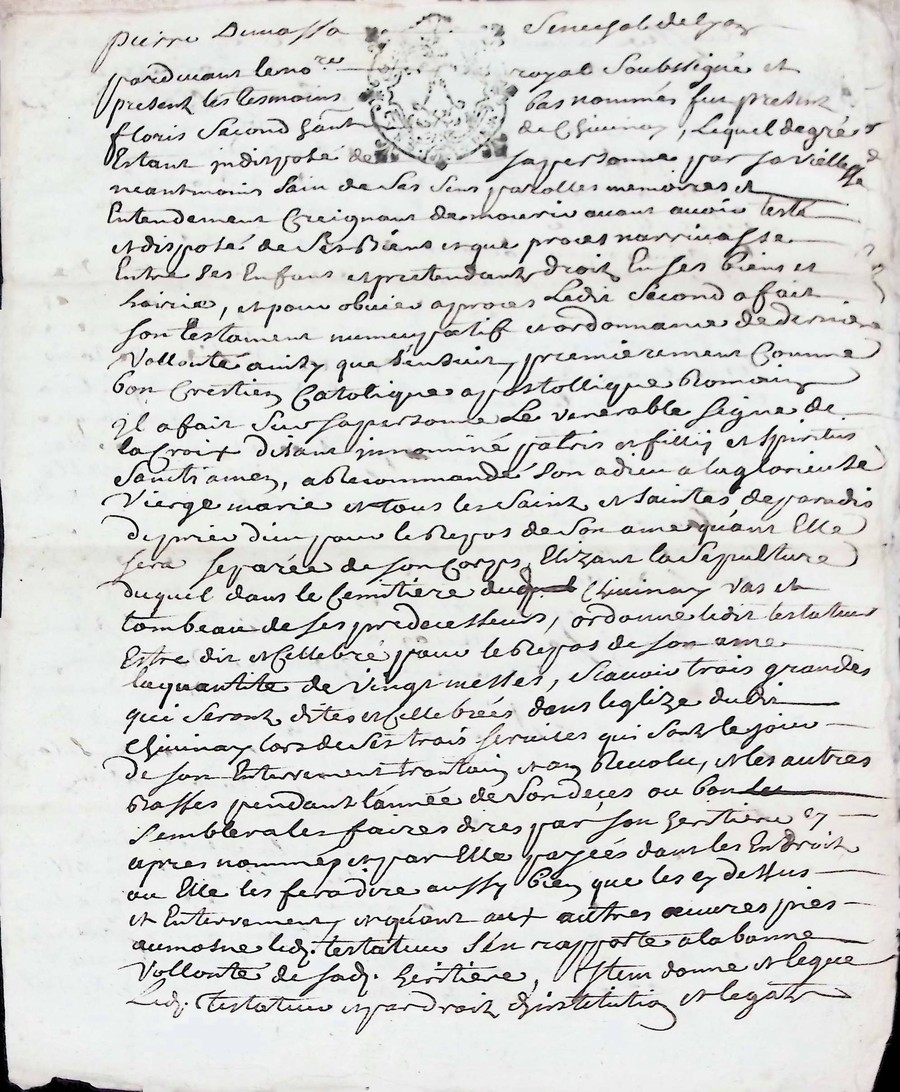 pierre Dumassa Senechal de lyon
pardevant le no.re royal Soubssigné et
present les tesmoins bas nommés fut present
floris Second de Chivinay, Lequel de gré
Estant indisposé de sa personne par sa vieillesse
neantmoins Sain de Ses Sens parolles memoires et
Entendement Creignant de mourir avant avoir testé
et disposé de Ses Biens et que proces narrivasse
Entre Ses Enfans et pretendants droit En ses biens et
hairie, et pour obvier a proces Ledit Second a fait
Son testament nuncupatif et ordonnance de derniere
Vollonté ainsy que s'ensuit, premierement Comme
bon Crestien Catolique apostollique Romain
Il a fait Sur sa personne Le venerable signe de
la Croix disant in nominé patris et fillij et spiritus
Sancti amen, a Recommandé Son ame a la glorieuse
Vierge marie et tous les Saints et saintes de paradis
de prier dieu pour le Repos de Son ame qu'ant Elle
sera separée de son Corps, Elizant la Sepulture
duquel dans le Cemitière du Chivinay vas et
tombeau de ses predecesseurs, ordonne ledit testateur
Estre dit et Cellebré pour le Repos de son ame
la quantité de vingt messes, scavoir trois grandes
qui Seront dites et Cellebrées dans leglize dudit
Chivinay lors de Ses trois services qui Sont le jour
de son Enterrement trantain et an Revolu, et les autres
basses pendant l'année de Son deces ou bon
Semblera les faires dires par son heritiere cy
apres nommée et par Elle payées dans les Endroit
ou Elle les fera dire aussy bien que les cy dessus
et Enterrement, et quant aux autres œuvres pies
aumosne ledt. testateur s'en rapporte a la bonne
Vollonté de sadt. heritière, Item donne et legue
Ledt. testateur et par droit d'institution et legat